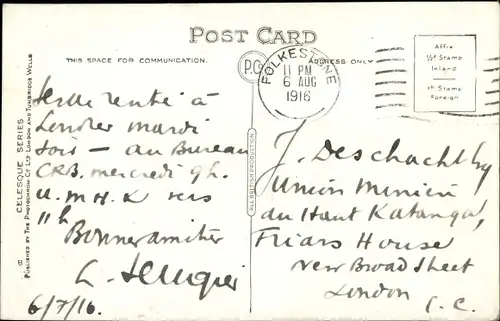 POST CARD
THIS SPACE FOR COMMUNICATION.
ADDRESS ONLY
P.C.
FOLKESTONE
11 PM
6 AUG
1916
Affix
½d Stamp
Inland
1d Stamp
Foreign
CELESQUE SERIES
PUBLISHED BY THE PHOTOCHROM CO. LTD LONDON AND TUNBRIDGE WELLS
ALL BRITISH PRODUCTION
à
mardi
soir — au Bureau
CRB. mercredi 9h.
U.M.H.K vers
11h
6/7/16.
J. Deschacht
Union Minière
du Haut Katanga,
Friars House
New Broad Street
London E.C.